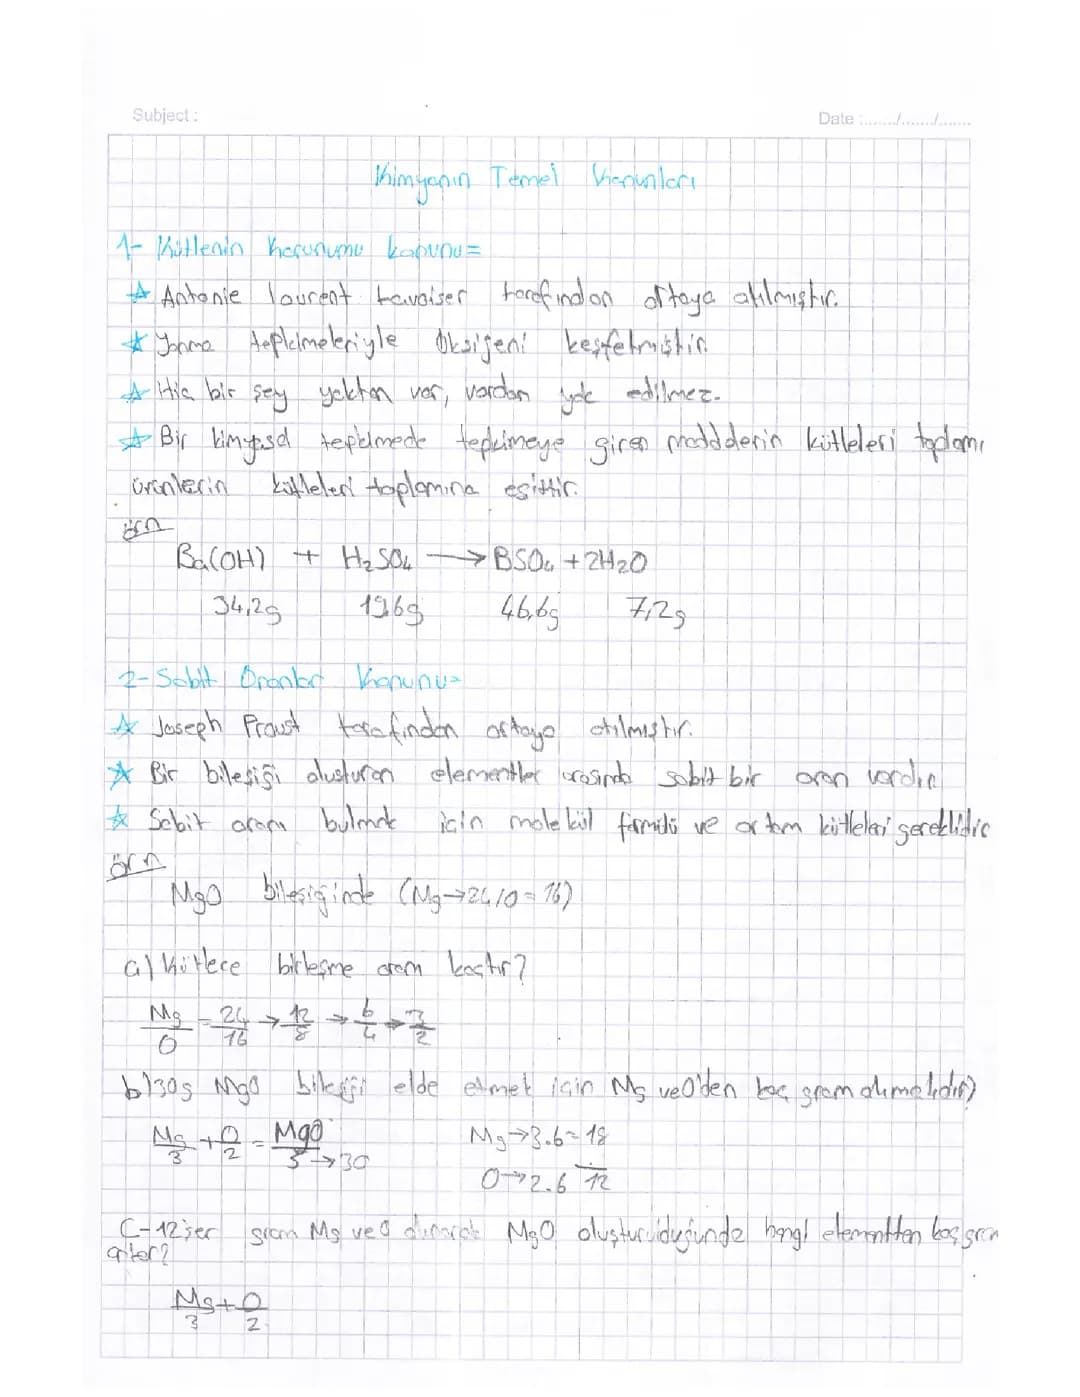 Subject :
Date :......../......../........
Kimyanın Temel Kanunları
1- Kütlenin Korunumu kanunu=
☆ Antonie laurent Lavoiser tarafından ortaya atılmıştır.
☆ Yanma tepkimeleriyle Oksijeni keşfetmiştir.
☆ Hiç bir şey yoktan var, vardan yok edilmez.
☆ Bir kimyasal tepkimede tepkimeye giren maddelerin kütleleri toplamı
ürünlerin kütleleri toplamına eşittir.
örn
Ba(OH) + H₂SO₄ → BSO₄ + 2H₂O
34,2g 19,6g 46,6g 7,2g
2- Sabit Oranlar Kanunu=
☆ Joseph Proust tarafından ortaya atılmıştır.
☆ Bir bileşiği oluşturan elementler arasında sabit bir oran vardır.
☆ Sabit oranı bulmak için molekül formülü ve kütleleri gereklidir
örn
MgO bileşiğinde (Mg→24, O=16)
a) Kütlece birleşme oranı kaçtır?
Mg/O = 24/16 → 12/8 → 6/4 → 3/2
b) 30g MgO bileşiği elde etmek için Mg ve O'den kaç gram alınmalıdır?
Mg/3 + O/2 = MgO/5 → 30
Mg→3.6=18
O→2.6 12
C- 12'şer gram Mg ve O alınarak MgO oluşturulduğunda hangi elementten kaç gram
artar?
Mg/3 + O/2